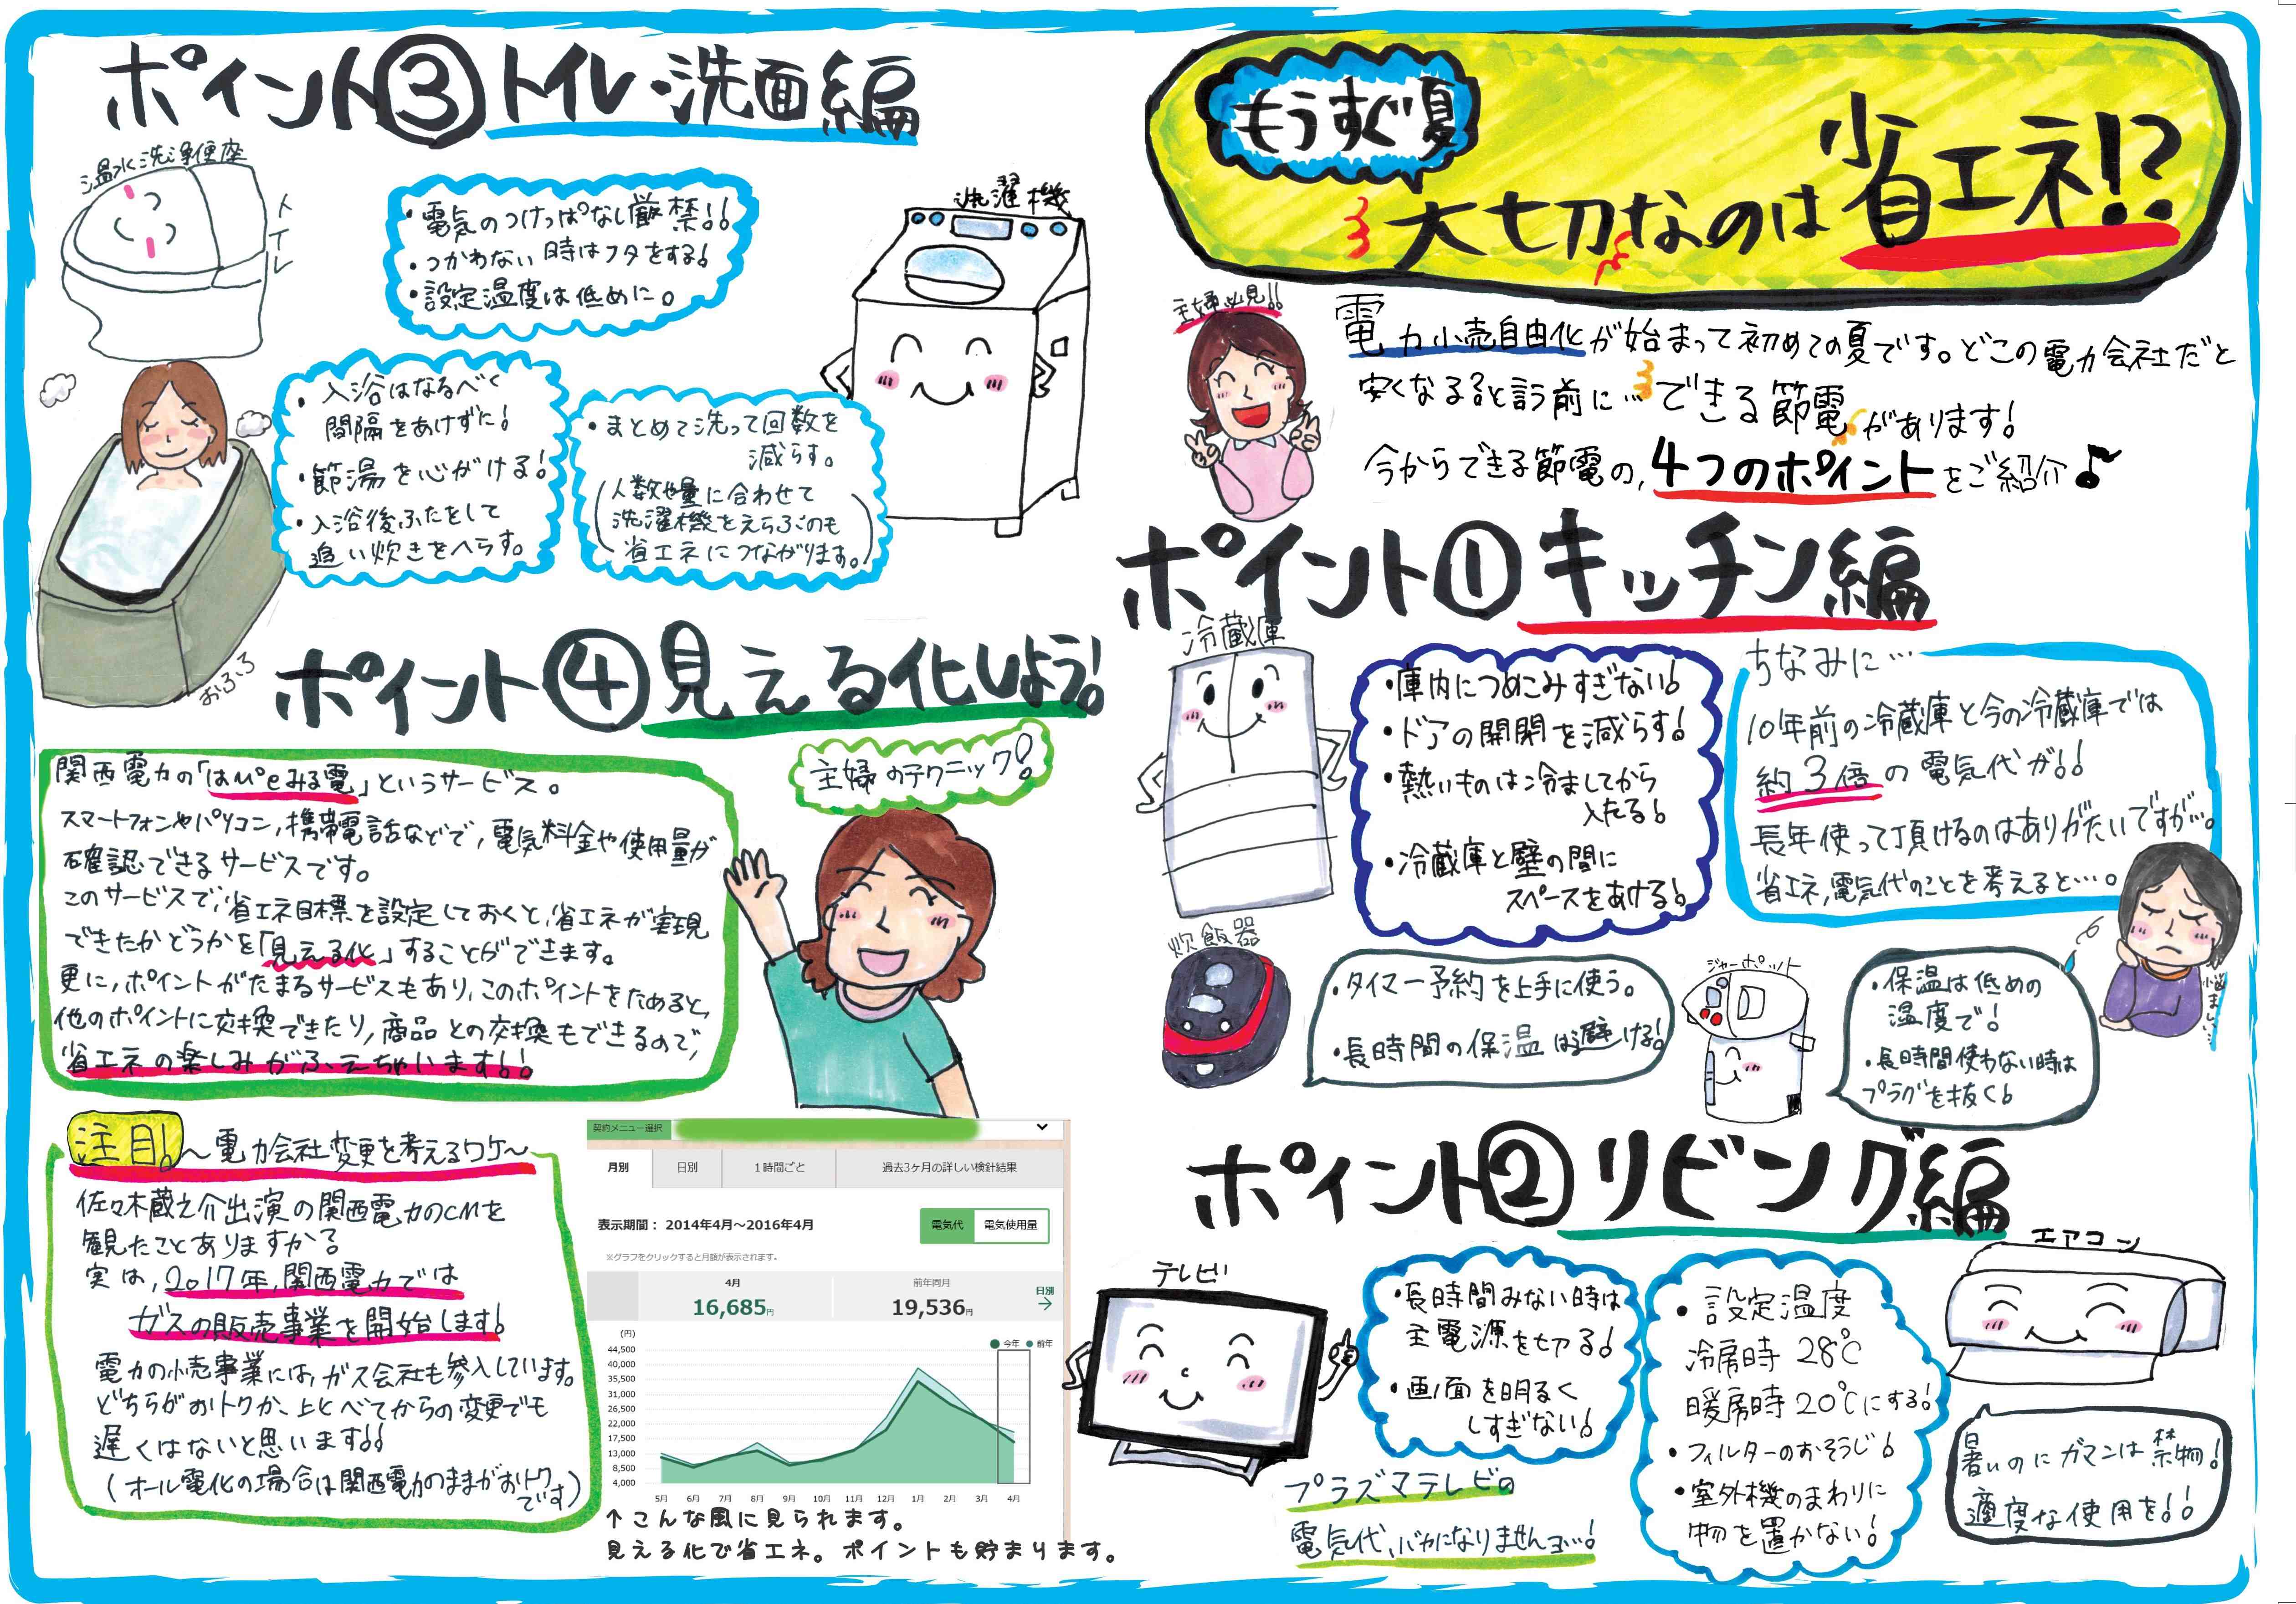 もうすぐ夏
大切なのは省エネ!?
主婦必見!!
電力小売自由化が始まって初めての夏です。どこの電力会社だと
安くなる?と言う前に…できる節電があります!
今からできる節電の、4つのポイントをご紹介♪
ポイント①キッチン編
冷蔵庫
・庫内につめこみすぎない!
・ドアの開閉を減らす!
・熱いものは冷ましてから
入れる!
・冷蔵庫と壁の間に
スペースをあける!
ちなみに…
10年前の冷蔵庫と今の冷蔵庫では
約3倍の電気代が!!
長年使って頂けるのはありがたいですが…。
省エネ,電気代のことを考えると…。
悩ましい…
炊飯器
・タイマー予約を上手に使う。
・長時間の保温は避ける!
ジャーポット
・保温は低めの
温度で!
・長時間使わない時は
プラグを抜く!
ポイント②リビング編
テレビ
・長時間みない時は
主電源を切る!
・画面を明るく
しすぎない!
プラズマテレビの
電気代、バカになりませんヨ…!
・設定温度
冷房時 28℃
暖房時 20℃にする!
・フィルターのおそうじ!
・室外機のまわりに
物を置かない!
エアコン
暑いのにガマンは禁物!
適度な使用を!!
ポイント③トイレ・洗面編
温水洗浄便座
トイレ
・電気のつけっぱなし厳禁!!
・つかわない時はフタをする!
・設定温度は低めに。
洗濯機
・入浴はなるべく
間隔をあけずた!
・節湯を心がける!
・入浴後ふたをして
追い炊きをへらす。
おふろ
・まとめて洗って回数を
減らす。
(人数や量に合わせて
洗濯機をえらぶのも
省エネにつながります。)
ポイント④見える化しよう!
主婦のテクニック!
関西電力の「はぴeみる電」というサービス。
スマートフォンやパソコン,携帯電話などで,電気料金や使用量が
確認できるサービスです。
このサービスで,省エネ目標を設定しておくと,省エネが実現
できたかどうかを「見える化」することができます。
更に,ポイントがたまるサービスもあり,このポイントをためると,
他のポイントに交換できたり,商品との交換もできるので,
省エネの楽しみがふえちゃいます!!
注目!
~電力会社変更を考えるワケ~
佐々木蔵之介出演の関西電力のCMを
観たことありますか?
実は,2017年,関西電力では
ガスの販売事業を開始します!
電力の小売事業には,ガス会社も参入しています。
どちらがおトクか、比べてからの変更でも
遅くはないと思います!!
(オール電化の場合は関西電力のままがおトクです)
契約メニュー選択
月別 日別 1時間ごと 過去3ヶ月の詳しい検針結果
表示期間: 2014年4月~2016年4月 電気代 電気使用量
※グラフをクリックすると月額が表示されます。
4月 前年同月 日別
16,685円 19,536円 →
(円) 今年 前年
44,500
40,000
35,500
31,000
26,500
22,000
17,500
13,000
8,500
4,000
5月 6月 7月 8月 9月 10月 11月 12月 1月 2月 3月 4月
↑こんな風に見られます。
見える化で省エネ。ポイントも貯まります。